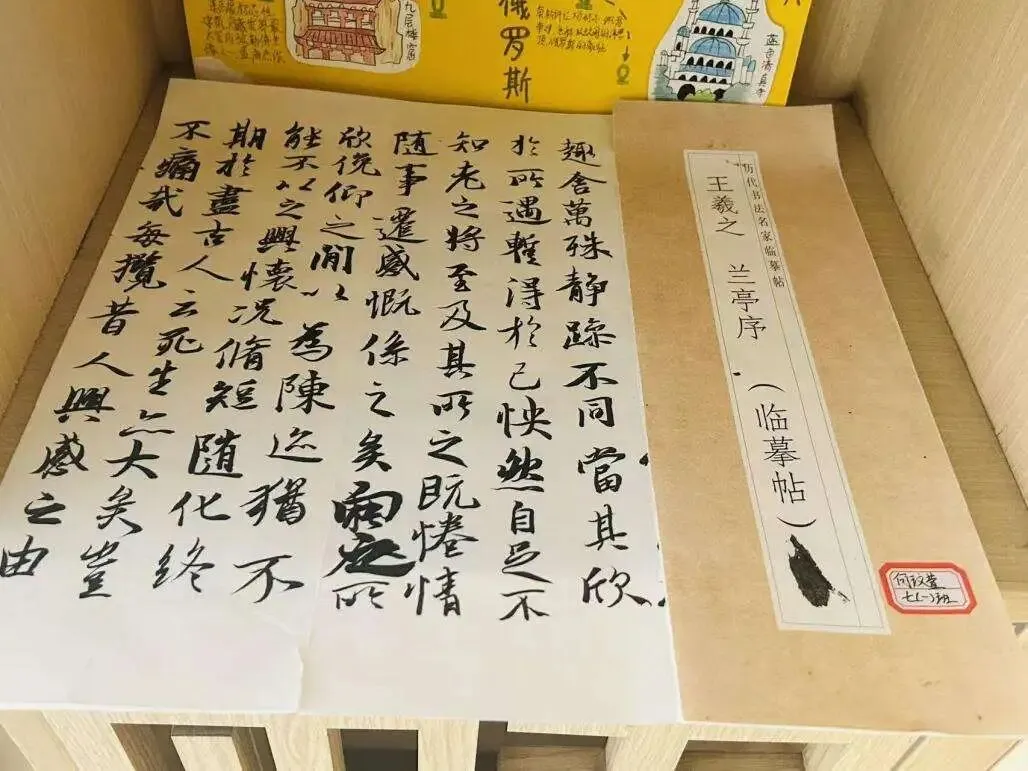 俄罗斯
蓝色清真寺
历代书法名家临摹帖
王羲之 兰亭序（临摹帖）
趣舍萬殊静躁不同當其欣
於所遇暫得於己怏然自足不
知老之將至及其所之既惓情
隨事遷感慨係之矣向之所
欣俛仰之閒以為陳迹猶不
能不以之興懷况脩短隨化終
期於盡古人云死生亦大矣豈
不痛哉每攬昔人興感之由